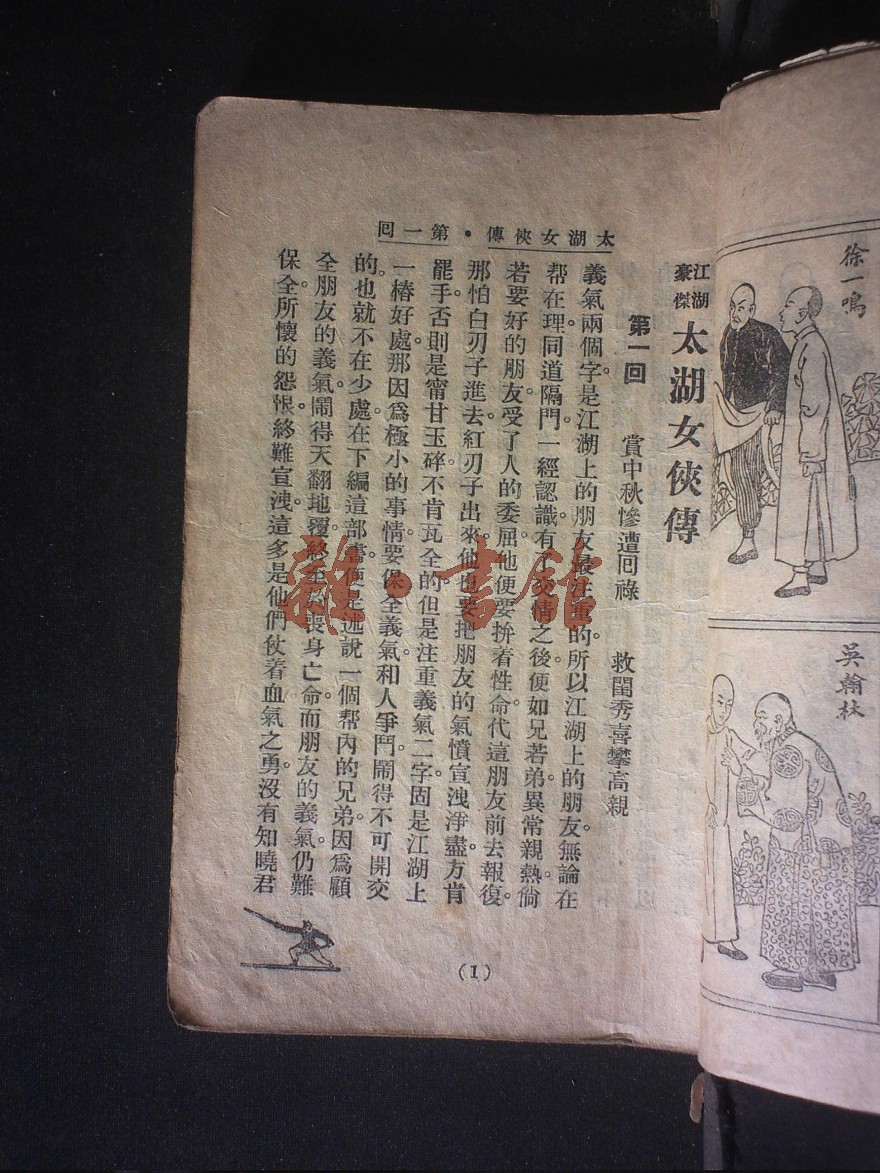 太湖女俠傳・第一回
江湖
豪傑
太湖女俠傳
第一回　賞中秋慘遭回祿　救閨秀喜攀高親
義氣兩個字。是江湖上的朋友最注重的。所以江湖上的朋友。無論在
帮在理。同道隔門。一經認識。有了交情之後。便如兄若弟。異常親熱。倘
若要好的朋友。受了人的委屈。他便要拚着性命。代這朋友前去報復。
那怕白刃子進去。紅刃子出來。他也要把朋友的氣憤宣洩淨盡。方肯
罷手。否則是甯甘玉碎。不肯瓦全的。但是注重義氣二字。固是江湖上
一樁好處。那因爲極小的事情。要保全義氣。和人爭鬥。鬧得不可開交
的。也就不在少處。在下編這部書。便是述說一個帮內的兄弟。因爲顧
全朋友的義氣。鬧得天翻地覆。終至於喪身亡命。而朋友的義氣。仍難
保全。所懷的怨恨。終難宣洩。這多是他們仗着血氣之勇。沒有知曉君
(1)
徐一鳴
吳翰林
雜・書館